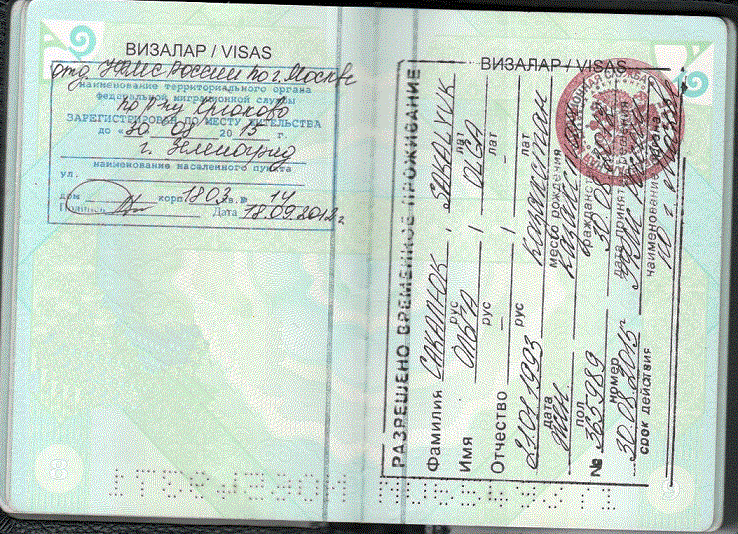 ВИЗАЛАР / VISAS
отд. УФМС России по г. Москве
наименование территориального органа
федеральной миграционной службы
по р-ну Крюково
ЗАРЕГИСТРИРОВАН ПО МЕСТУ ЖИТЕЛЬСТВА
до «30 08 2015 г.
г. Зеленоград
наименование населенного пункта
ул.
дом корп 1803 кв.№ 14
Подпись Дата 18.09.2012г
ВИЗАЛАР / VISAS
РАЗРЕШЕНО ВРЕМЕННОЕ ПРОЖИВАНИЕ
Фамилия САКАЛЮК / SAKALYUK
рус лат
Имя ОЛЬГА / OLGA
рус лат
Отчество — / —
рус лат
21.01.1993 Казахстан
дата место рождения
жен Казахстан
пол гражданство
№ 365989 30.08
номер дата принятия решения
30.08.2015г УФМС России
срок действия наименование органа
по г. Москве